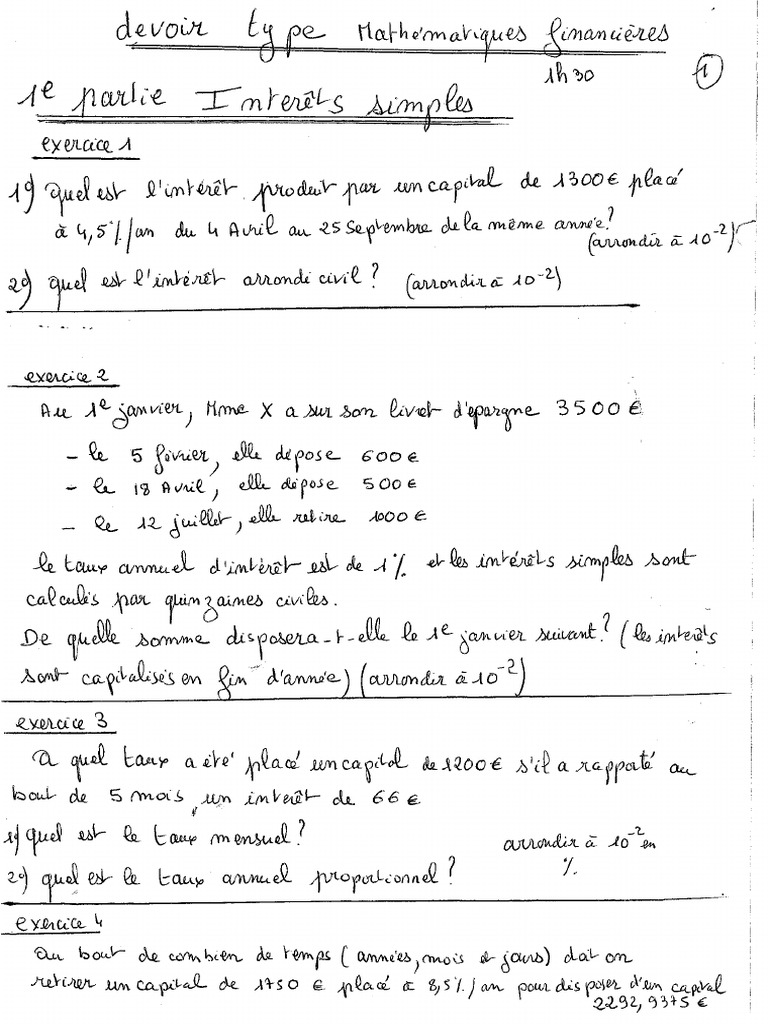 devoir type Mathématiques financières
1h30
1
1e partie Interêts simples
exercice 1
1°) Quel est l'intérêt produit par un capital de 1300€ placé
à 4,5%/an du 4 Avril au 25 Septembre de la même année?
(arrondir à 10^-2)
2°) quel est l'intérêt arrondi civil? (arrondir à 10^-2)
exercice 2
Au 1e janvier, Mme X a sur son livret d'épargne 3500€
- le 5 février, elle dépose 600€
- le 18 Avril, elle dépose 500€
- le 12 juillet, elle retire 1000€
le taux annuel d'intérêt est de 1% et les intérêts simples sont
calculés par quinzaines civiles.
De quelle somme disposera-t-elle le 1e janvier suivant? (les interêts
sont capitalisés en fin d'année) (arrondir à 10^-2)
exercice 3
A quel taux a été placé un capital de 1200€ s'il a rapporté au
bout de 5 mois un interêt de 66€
1°) Quel est le taux mensuel?
arrondir à 10^-2 en
%
2°) quel est le taux annuel proportionnel?
exercice 4
Au bout de combien de temps (années, mois et jours) doit on
retirer un capital de 1750 € placé à 8,5%/an pour disposer d'un capital
2292,9375€